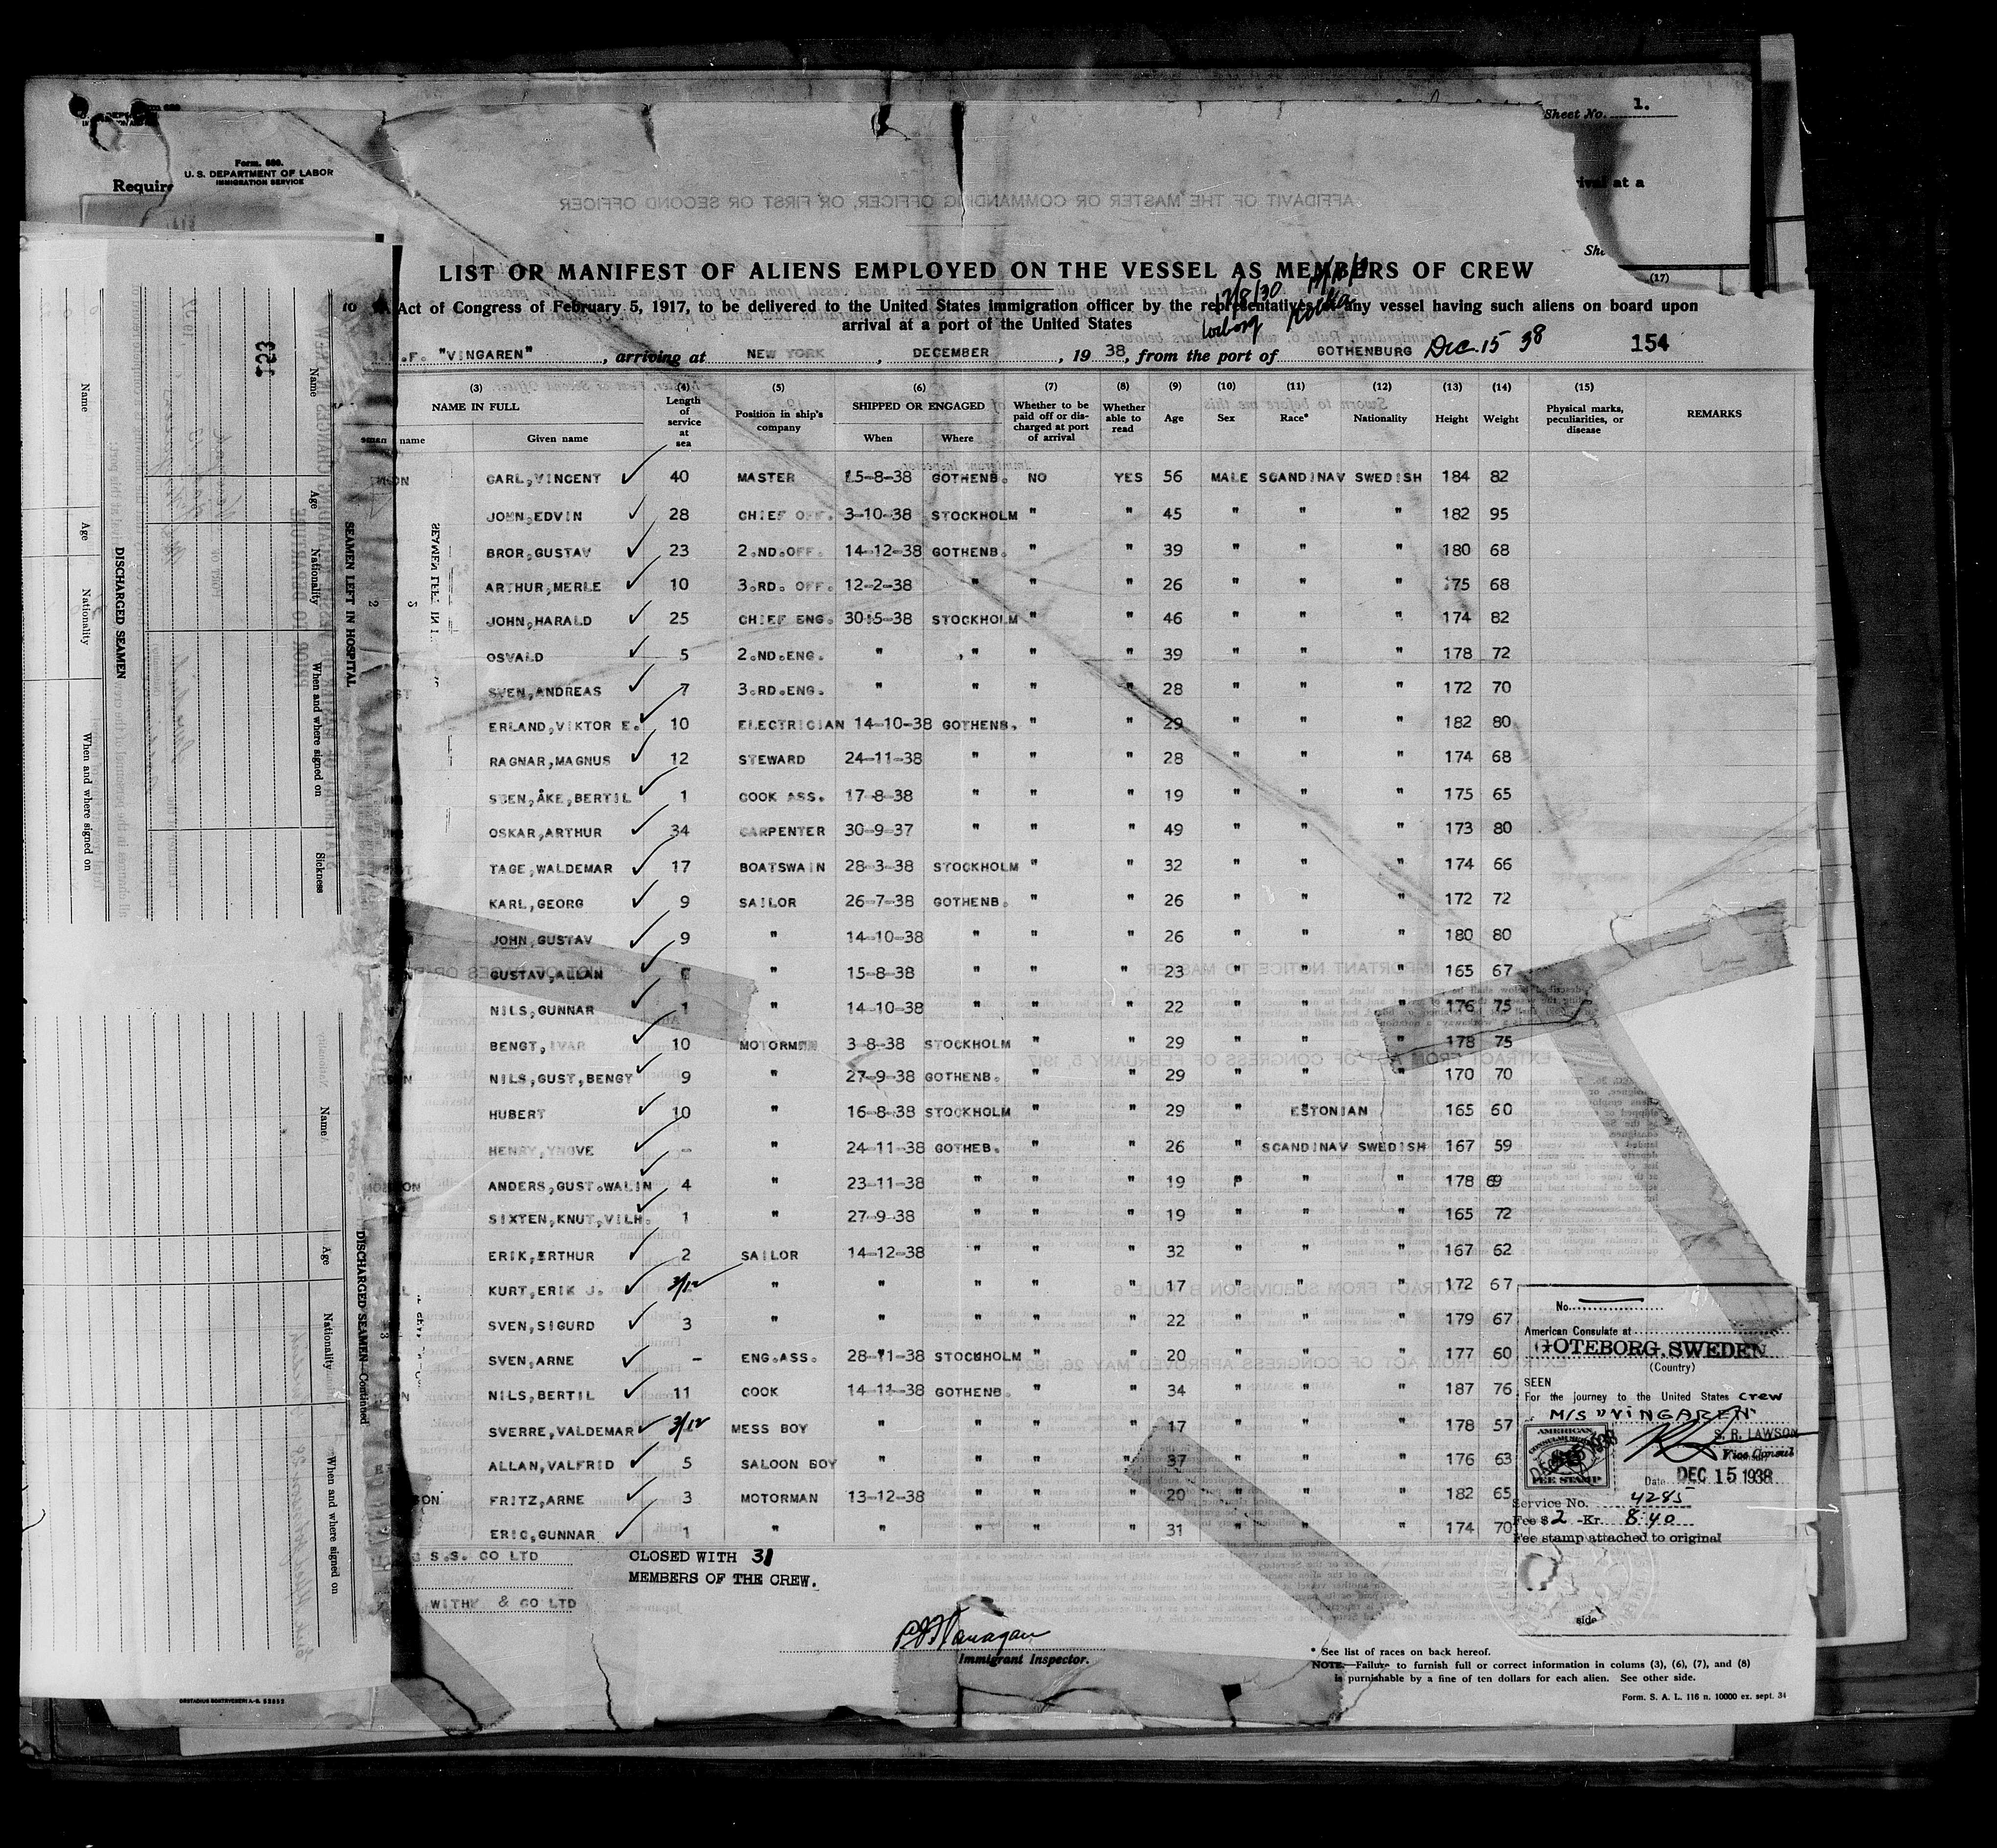 Sheet No. 1.
Form. 680.
U. S. DEPARTMENT OF LABOR
IMMIGRATION SERVICE
Require
rival at a
AFFIDAVIT OF THE MASTER OR COMMANDING OFFICER, OR FIRST OR SECOND OFFICER
LIST OR MANIFEST OF ALIENS EMPLOYED ON THE VESSEL AS MEMBERS OF CREW
(17)
Act of Congress of February 5, 1917, to be delivered to the United States immigration officer by the representatives of any vessel having such aliens on board upon
arrival at a port of the United States
"VINGAREN", arriving at NEW YORK, DECEMBER, 19 38, from the port of GOTHENBURG Dec. 15 38 154
(3) (4) (5) (6) (7) (8) (9) (10) (11) (12) (13) (14) (15)
NAME IN FULL Length of service at sea Position in ship's company SHIPPED OR ENGAGED Whether to be paid off or discharged at port of arrival Whether able to read Age Sex Race* Nationality Height Weight Physical marks, peculiarities, or disease REMARKS
name Given name When Where
CARL,VINCENT ✓ 40 MASTER 15-8-38 GOTHENB. NO YES 56 MALE SCANDINAV SWEDISH 184 82
JOHN,EDVIN ✓ 28 CHIEF OFF. 3-10-38 STOCKHOLM " " 45 " " " 182 95
BROR,GUSTAV ✓ 23 2.ND.OFF. 14-12-38 GOTHENB. " " 39 " " " 180 68
ARTHUR,MERLE ✓ 10 3.RD. OFF. 12-2-38 " " " 26 " " " 175 68
JOHN,HARALD ✓ 25 CHIEF ENG. 30-5-38 STOCKHOLM " " 46 " " " 174 82
OSVALD ✓ 5 2.ND.ENG. " " " " 39 " " " 178 72
SVEN,ANDREAS ✓ 7 3.RD.ENG. " " " " 28 " " " 172 70
ERLAND,VIKTOR E. ✓ 10 ELECTRICIAN 14-10-38 GOTHENB. " " 29 " " " 182 80
RAGNAR,MAGNUS ✓ 12 STEWARD 24-11-38 " " " 28 " " " 174 68
STEN,ÅKE,BERTIL ✓ 1 COOK ASS. 17-8-38 " " " 19 " " " 175 65
OSKAR,ARTHUR ✓ 34 CARPENTER 30-9-37 " " " 49 " " " 173 80
TAGE,WALDEMAR ✓ 17 BOATSWAIN 28-3-38 STOCKHOLM " " 32 " " " 174 66
KARL,GEORG ✓ 9 SAILOR 26-7-38 GOTHENB. " " 26 " " " 172 72
JOHN,GUSTAV ✓ 9 " 14-10-38 " " " 26 " " " 180 80
GUSTAV,ALLAN ✓ " 15-8-38 " " " 23 " " " 165 67
NILS,GUNNAR ✓ 1 " 14-10-38 " " " 22 " " " 176 75
BENGT,IVAR ✓ 10 MOTORMAN 3-8-38 STOCKHOLM " " 29 " " " 178 75
NILS,GUST,BENGY ✓ 9 " 27-9-38 GOTHENB. " " 29 " " " 170 70
HUBERT ✓ 10 " 16-8-38 STOCKHOLM " " 29 " ESTONIAN 165 60
HENRY,YNGVE ✓ - " 24-11-38 GOTHEB. " " 26 " SCANDINAV SWEDISH 167 59
ANDERS,GUST.WALIN ✓ 4 " 23-11-38 " " " 19 " " " 178 69
SIXTEN,KNUT,VILH. ✓ 1 " 27-9-38 " " " 19 " " " 165 72
ERIK,ERTHUR ✓ 2 SAILOR 14-12-38 " " " 32 " " " 167 62
KURT,ERIK J. ✓ 3/12 " " " " " 17 " " " 172 67
SVEN,SIGURD ✓ 3 " " " " " 22 " " " 179 67
SVEN,ARNE ✓ - ENG.ASS. 28-11-38 STOCKHOLM " " 20 " " " 177 60
NILS,BERTIL ✓ 11 COOK 14-11-38 GOTHENB. " " 34 " " " 187 76
SVERRE,VALDEMAR ✓ 3/12 MESS BOY " " " " 17 " " " 178 57
ALLAN,VALFRID ✓ 5 SALOON BOY " " " " 37 " " " 176 63
FRITZ,ARNE ✓ 3 MOTORMAN 13-12-38 " " " 20 " " " 182 65
ERIC,GUNNAR ✓ 1 " " " " " 31 " " " 174 70
S.S. CO LTD
CLOSED WITH 31
MEMBERS OF THE CREW.
& CO LTD
Immigrant Inspector.
No.
American Consulate at
GOTEBORG, SWEDEN
(Country)
SEEN
For the journey to the United States crew
M/S "VINGAREN"
AMERICAN
FEE STAMP
S. R. LAWSON
Vice Consul
Date DEC 15 1938
Service No. 4285
Fee $ 2 -Kr. 8.40
Fee stamp attached to original
side
* See list of races on back hereof.
NOTE.—Failure to furnish full or correct information in colums (3), (6), (7), and (8)
is purnishable by a fine of ten dollars for each alien. See other side.
Form. S. A. L. 116 n. 10000 ex. sept. 34
SEAMEN LEFT IN HOSPITAL
Name Age Nationality When and where signed on Sickness
DISCHARGED SEAMEN
Name Age Nationality When and where signed on
DISCHARGED SEAMEN—Continued
Name Age Nationality When and where signed on